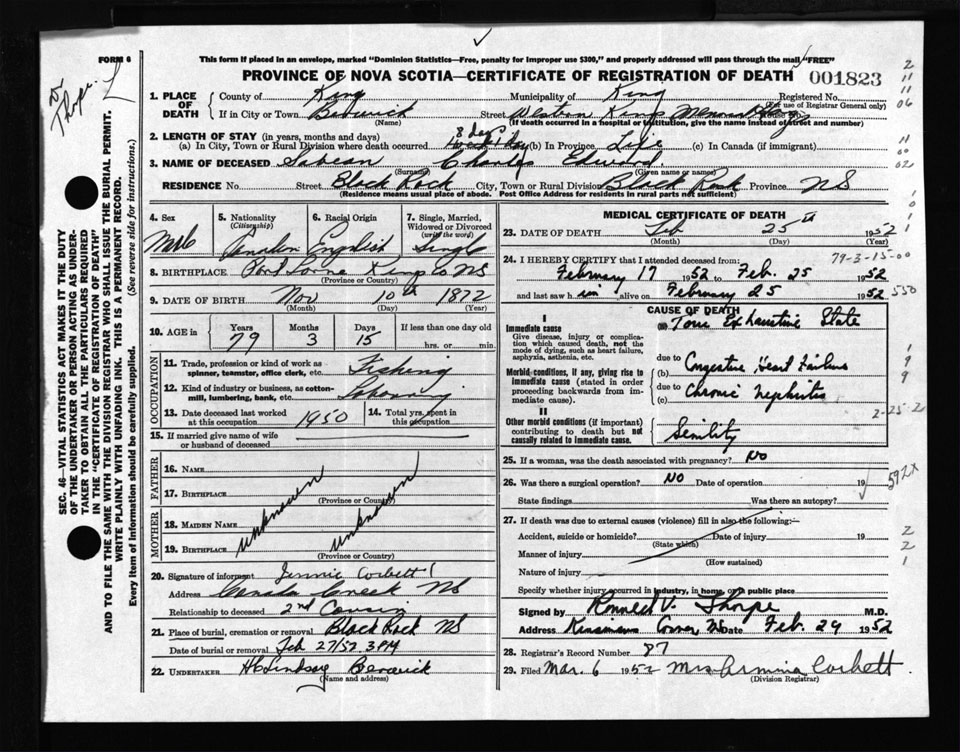 FORM 6
This form if placed in an envelope, marked "Dominion Statistics—Free, penalty for improper use $300," and properly addressed will pass through the mail "FREE"
PROVINCE OF NOVA SCOTIA—CERTIFICATE OF REGISTRATION OF DEATH
001823
Thorpe
1. PLACE OF DEATH
County of Kings Municipality of Kings Registered No.
(For use of Registrar General only)
If in City or Town Berwick Street Western Kings Memorial
(Name) (If death occurred in a hospital or institution, give the name instead of street and number)
2. LENGTH OF STAY (in years, months and days)
(a) In City, Town or Rural Division where death occurred 8 days (b) In Province Life (c) In Canada (if immigrant)
3. NAME OF DECEASED Sabean Charles Edward
(Surname) (Given name or names)
RESIDENCE No. Street Black Rock City, Town or Rural Division Black Rock Province NS
(Residence means usual place of abode. Post Office Address for residents in rural parts not sufficient)
4. Sex Male
5. Nationality (Citizenship) Canadian
6. Racial Origin English
7. Single, Married, Widowed or Divorced (write the word) Single
8. BIRTHPLACE Port Lorne Kings Co NS
(Province or Country)
9. DATE OF BIRTH Nov 10th 1872
(Month) (Day) (Year)
10. AGE in Years 79 Months 3 Days 15 If less than one day old hrs. or min.
OCCUPATION
11. Trade, profession or kind of work as spinner, teamster, office clerk, etc. Fishing
12. Kind of industry or business, as cotton-mill, lumbering, bank, etc.
13. Date deceased last worked at this occupation 1950
14. Total yrs. spent in this occupation
15. If married give name of wife or husband of deceased
FATHER
16. NAME unknown
17. BIRTHPLACE unknown
(Province or Country)
MOTHER
18. MAIDEN NAME
19. BIRTHPLACE
(Province or Country)
20. Signature of informant Jennie Corbett
Address Canada Creek NS
Relationship to deceased 2nd Cousin
21. Place of burial, cremation or removal Black Rock NS
Date of burial or removal Feb 27/52 3 PM
22. UNDERTAKER Berwick
(Name and address)
MEDICAL CERTIFICATE OF DEATH
23. DATE OF DEATH Feb 25th 1952
(Month) (Day) (Year)
79-3-15-00
24. I HEREBY CERTIFY that I attended deceased from:
February 17 1952 to Feb. 25 1952
and last saw him alive on February 25 1952
550
CAUSE OF DEATH
I
Immediate cause
Give disease, injury or complication which caused death, not the mode of dying, such as heart failure, asphyxia, asthenia, etc.
(a) Exhaustive State
due to
Morbid conditions, if any, giving rise to immediate cause (stated in order proceeding backwards from immediate cause).
(b) Congestive Heart Failure
due to
(c) Chronic Nephritis
2-25-2
II
Other morbid conditions (if important) contributing to death but not causally related to immediate cause.
Senility
25. If a woman, was the death associated with pregnancy? No
26. Was there a surgical operation? No Date of operation 19
592x
State findings Was there an autopsy?
27. If death was due to external causes (violence) fill in also the following:—
Accident, suicide or homicide? Date of injury 19
(State which)
Manner of injury
(How sustained)
Nature of injury
Specify whether injury occurred in industry, in home, or in public place
Signed by V. Thorpe M.D.
Address Kinsmans Corner NS Date Feb. 29 1952
28. Registrar's Record Number 87
29. Filed Mar. 6 1952 Mrs Armina Corbett
(Division Registrar)
SEC. 46—VITAL STATISTICS ACT MAKES IT THE DUTY OF THE UNDERTAKER OR PERSON ACTING AS UNDERTAKER TO OBTAIN ALL THE PARTICULARS REQUIRED IN THE "CERTIFICATE OF REGISTRATION OF DEATH" AND TO FILE THE SAME WITH THE DIVISION REGISTRAR WHO SHALL ISSUE THE BURIAL PERMIT.
WRITE PLAINLY WITH UNFADING INK. THIS IS A PERMANENT RECORD.
Every item of Information should be carefully supplied. (See reverse side for instructions.)